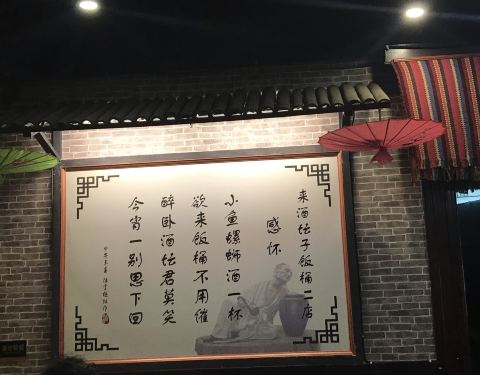 来酒坛子饭桶二店
感怀
小鱼螺蛳酒一杯
欲来饭桶不用催
醉卧酒坛君莫笑
今宵一别思下回